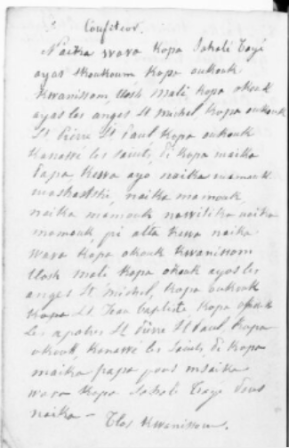 Confiteor.
Naika wawa kopa Sahali Tayé
ayas skoukoum kopa oukouk
kwanissom, tlosh Mali, kopa okouk
ayas les anges St Michel kopa oukouk
St Pierre St Paul kopa oukouk
kanawé les saints, ti kopa maika
papa kewa ayo naika mamouk
mashatshi, naika mamouk,
naika mamouk nawitka naika
mamouk, pi alta kewa naika
wawa kopa okouk kwanissom
tlosh Mali kopa okouk ayas les
anges St Michel, kopa oukouk
kopa St Jean Baptiste, kopa
les apotres St Pierre St Paul kopa
okouk, kanawé les Saints, ti kopa
maika papa pous msaika
wawa kopa Sahali Tayé pous
naika — Tlos kwanissom.